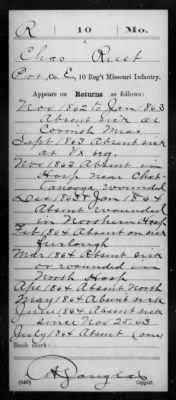 R 10 Mo.
Chas Rust
Pvt., Co. E, 10 Reg't Missouri Infantry.
Appears on Returns as follows:
Nov 1862 to Jan 1863
Absent sick at
Corinth Miss
Sept 1863 Absent sick
at Vx brg.
Nov 1863 Absent in
Hosp near Chat-
tanooga wounded
Dec 1863 & Jan 1864
Absent wounded
in Northern Hosp
Feb 1864 Absent on sick
furlough
Mar 1864 Absent sick
or wounded in
North Hosp
Apr 1864 Absent North
May 1864 Absent sick
June 1864 Absent sick
since Nov 25. 63
July 1864 Absent
Book mark:
Douglas
(546) Copyist.